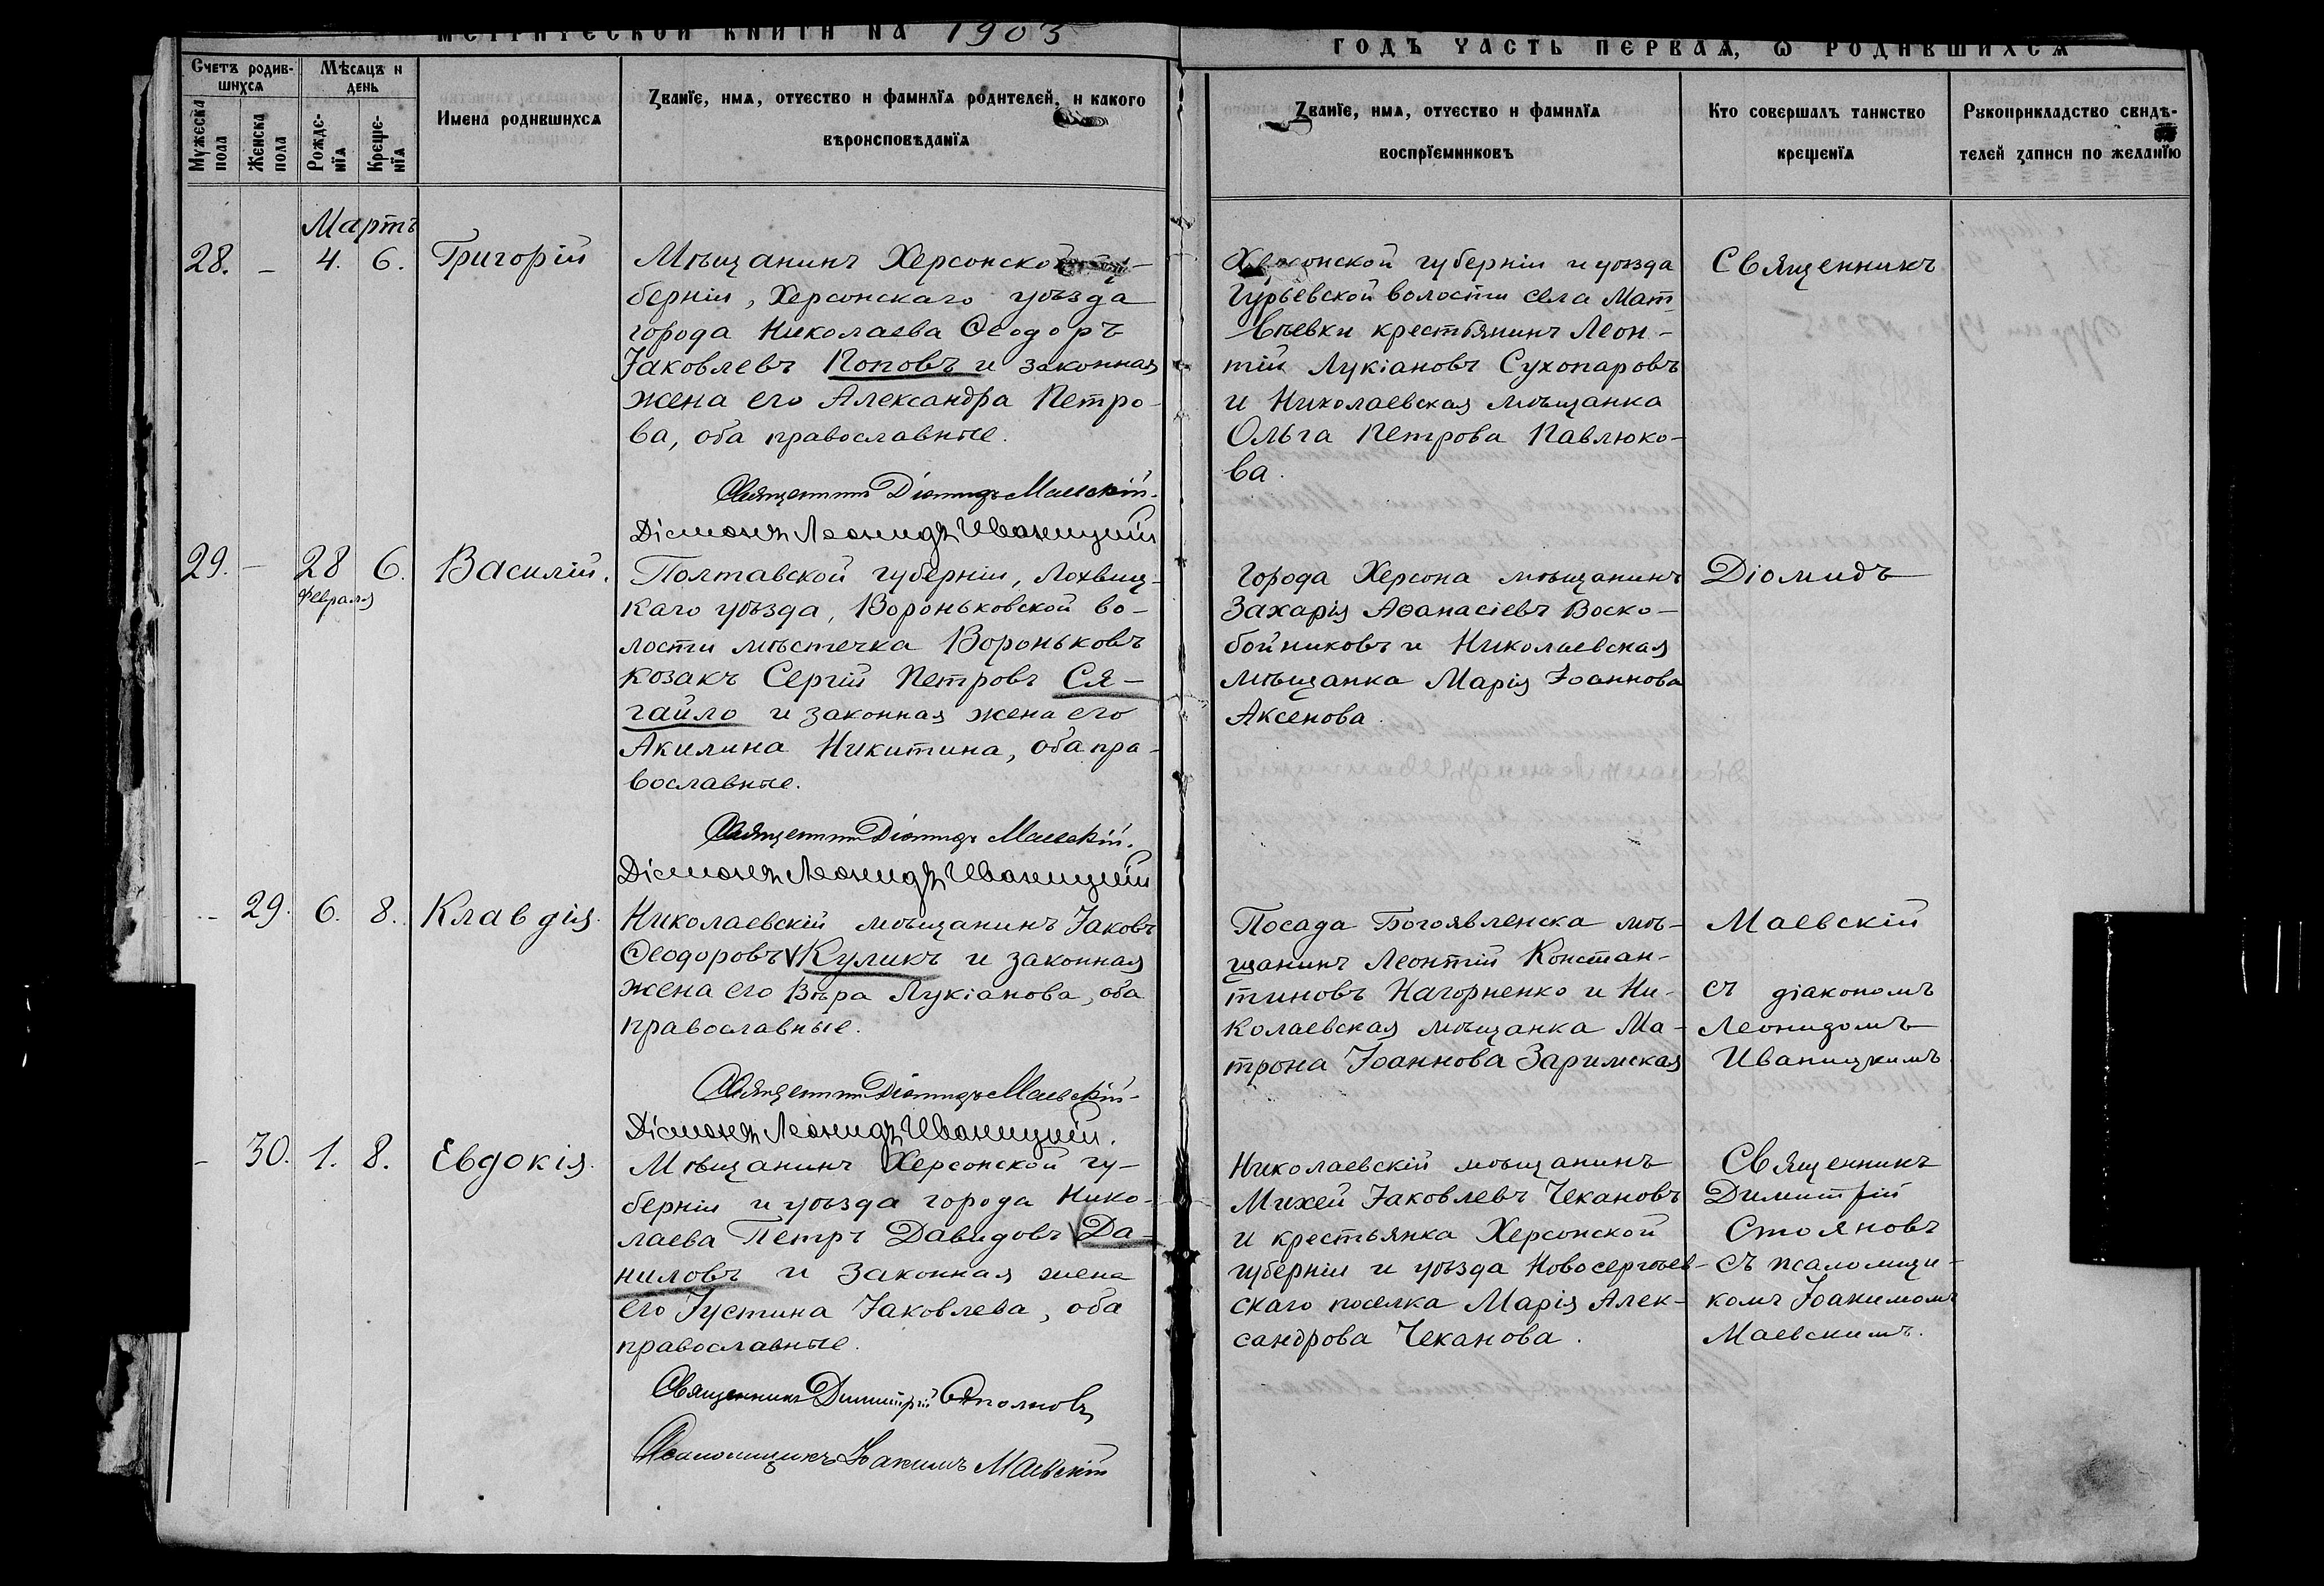 МЕТРИЧЕСКОЙ КНИГИ НА 1903
ГОДЪ ЧАСТЬ ПЕРВАЯ, Ѡ РОДИВШИХСѦ
Счетъ родив-
шихсѧ
Мѣсѧцъ и
день
Мꙋжеска
пола
Женска
пола
Рожде-
нїѧ
Креще-
нїѧ
Имена родившихсѧ
Званїе, имѧ, отчество и фамилїѧ родителей, и какого
вѣроисповѣданїѧ
Званїе, имѧ, отчество и фамилїѧ
воспрїемниковъ
Кто совершалъ таинство
крещенїѧ
Рꙋкоприкладство свидѣ-
телей записи по желанїю
Мартъ
28. – 4. 6. Григорій
Мѣщанинъ Херсонской гу-
берніи, Херсонскаго уѣзда
города Николаева Ѳеодоръ
Іаковлевъ Поповъ и законная
жена его Александра Петро-
ва, оба православные.
Священникъ Діомидъ Маевскій.
Діаконъ Леонидъ Иваницкій
Херсонской губерніи и уѣзда
Гурьевской волости села Мат-
вѣевки крестьянинъ Леон-
тій Лукіановъ Сухопаровъ
и Николаевская мѣщанка
Ольга Петрова Павлюко-
ва.
Священникъ
29. – 28 6. Василій.
Февраля
Полтавской губерніи, Лохвиц-
каго уѣзда, Вороньковской во-
лости мѣстечка Вороньковъ
козакъ Сергій Петровъ Ся-
гайло и законная жена его
Акилина Никитина, оба пра-
вославные.
Священникъ Діомидъ Маевскій.
Діаконъ Леонидъ Иваницкій
Города Херсона мѣщанинъ
Захарія Аѳанасіевъ Воско-
бойниковъ и Николаевская
мѣщанка Марія Іоаннова
Аксенова.
Діомидъ
– 29. 6. 8. Клавдія.
Николаевскій мѣщанинъ Іаковъ
Ѳеодоровъ Куликъ и законная
жена его Вѣра Лукіанова, оба
православные.
Священникъ Діомидъ Маевскій
Діаконъ Леонидъ Иваницкій.
Посада Богоявленска мѣ-
щанинъ Леонтій Констан-
тиновъ Нагорненко и Ни-
колаевская мѣщанка Ма-
трона Іоаннова Заримская
Маевскій
съ діакономъ
Леонидомъ
Иваницкимъ
– 30. 1. 8. Евдокія.
Мѣщанинъ Херсонской гу-
берніи и уѣзда города Нико-
лаева Петръ Давидовъ Да-
ниловъ и законная жена
его Іустина Іаковлева, оба
православные.
Священникъ Димитрій Стояновъ
Псаломщикъ Іоакимъ Маевскій
Николаевскій мѣщанинъ
Михей Іаковлевъ Чекановъ
и крестьянка Херсонской
губерніи и уѣзда Новосергѣев-
скаго поселка Марія Алек-
сандрова Чеканова.
Священникъ
Димитрій
Стояновъ
съ псаломщи-
комъ Іоакимомъ
Маевскимъ.